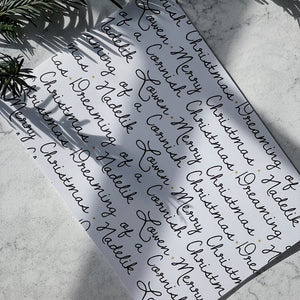 a Cornish Christmas · Dreaming
Lowen · Merry Christmas
Dreaming of a Cornish Christmas · Dreaming
Nadelik Lowen · Merry Christmas · Nadelik
Christmas · Dreaming of a Cornish Christmas
Merry Christmas · Nadelik Lowen · Merry Christmas
Christmas · Dreaming of a Cornish
Merry Christmas · Nadelik Lowen